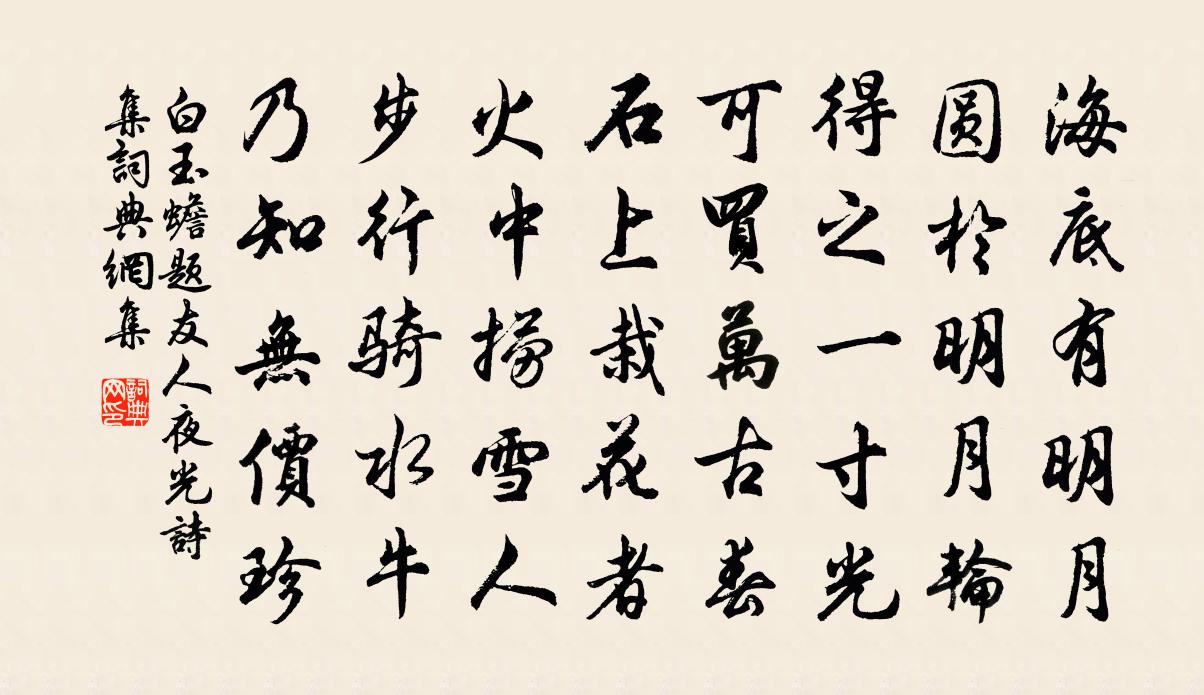 海底有明月
圆於明月輪
得之一寸光
可買萬古春
石上栽花者
火中撈雪人
步行骑水牛
乃知無價珍
白玉蟾题友人夜光詩
集詞典網集
詞典网印